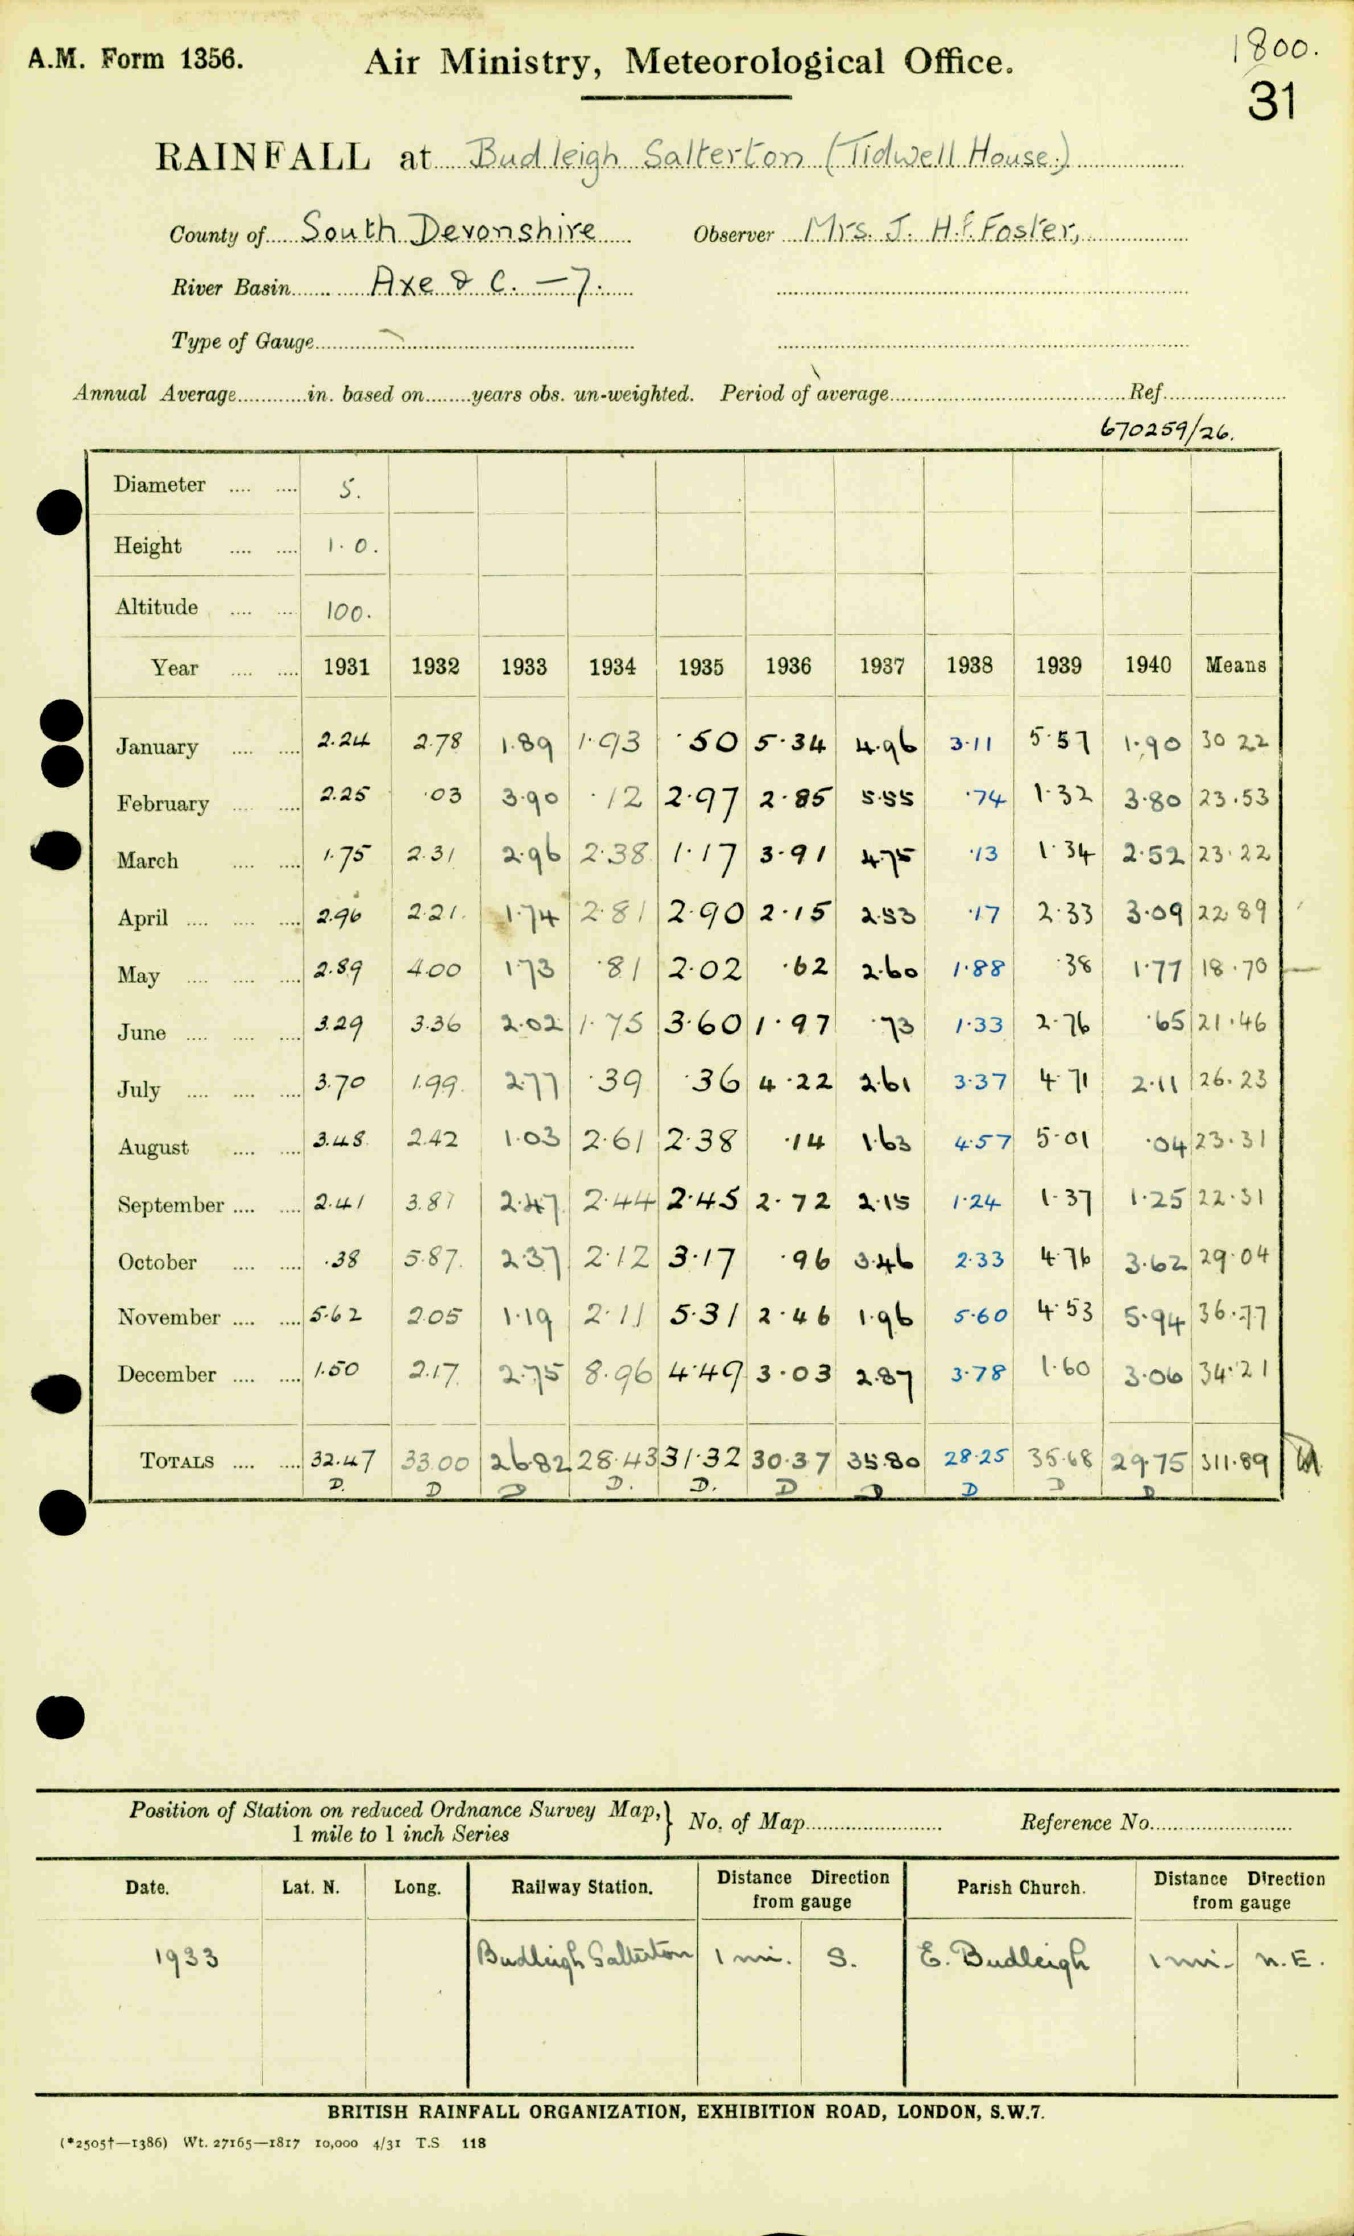 A.M. Form 1356.
Air Ministry, Meteorological Office.
1800.
31
RAINFALL at Budleigh Salterton (Tidwell House.)
County of South Devonshire Observer Mrs. J. H.F. Foster,
River Basin Axe & C. —7.
Type of Gauge
Annual Average in. based on years obs. un-weighted. Period of average Ref.
670259/26.
Diameter .... .... 5.
Height .... .... 1.0.
Altitude .... .... 100.
Year .... .... 1931 1932 1933 1934 1935 1936 1937 1938 1939 1940 Means
January .... .... 2.24 2.78 1.89 1.93 .50 5.34 4.96 3.11 5.57 1.90 30 22
February .... .... 2.25 .03 3.90 .12 2.97 2.85 5.55 .74 1.32 3.80 23.53
March .... .... 1.75 2.31 2.96 2.38 1.17 3.91 4.75 .13 1.34 2.52 23.22
April .... .... .... 2.96 2.21. 1.74 2.81 2.90 2.15 2.53 .17 2.33 3.09 22 89
May .... .... .... 2.89 4.00 1.73 .81 2.02 .62 2.60 1.88 .38 1.77 18.70
June .... .... .... 3.29 3.36 2.02 1.75 3.60 1.97 .73 1.33 2.76 .65 21.46
July .... .... .... 3.70 1.99. 2.77 .39 .36 4.22 2.61 3.37 4.71 2.11 26.23
August .... .... 3.48 2.42 1.03 2.61 2.38 .14 1.63 4.57 5.01 .04 23.31
September .... .... 2.41 3.81 2.47 2.44 2.45 2.72 2.15 1.24 1.37 1.25 22.31
October .... .... .38 5.87. 2.37 2.12 3.17 .96 3.46 2.33 4.76 3.62 29.04
November .... .... 5.62 2.05 1.19 2.11 5.31 2.46 1.96 5.60 4.53 5.94 36.77
December .... .... 1.50 2.17. 2.75 8.96 4.49 3.03 2.87 3.78 1.60 3.06 34.21
TOTALS .... .... 32.47 33.00 26.82 28.43 31.32 30.37 35.80 28.25 35.68 29.75 311.89
D. D D D. D. D D D D D
Position of Station on reduced Ordnance Survey Map,} No. of Map Reference No.
1 mile to 1 inch Series
Date. Lat. N. Long. Railway Station. Distance Direction from gauge Parish Church. Distance Direction from gauge
1933 Budleigh Salterton 1 mi. S. E. Budleigh 1 mi. N.E.
BRITISH RAINFALL ORGANIZATION, EXHIBITION ROAD, LONDON, S.W.7.
(*2505†—1386) Wt. 27165—1817 10,000 4/31 T.S 118